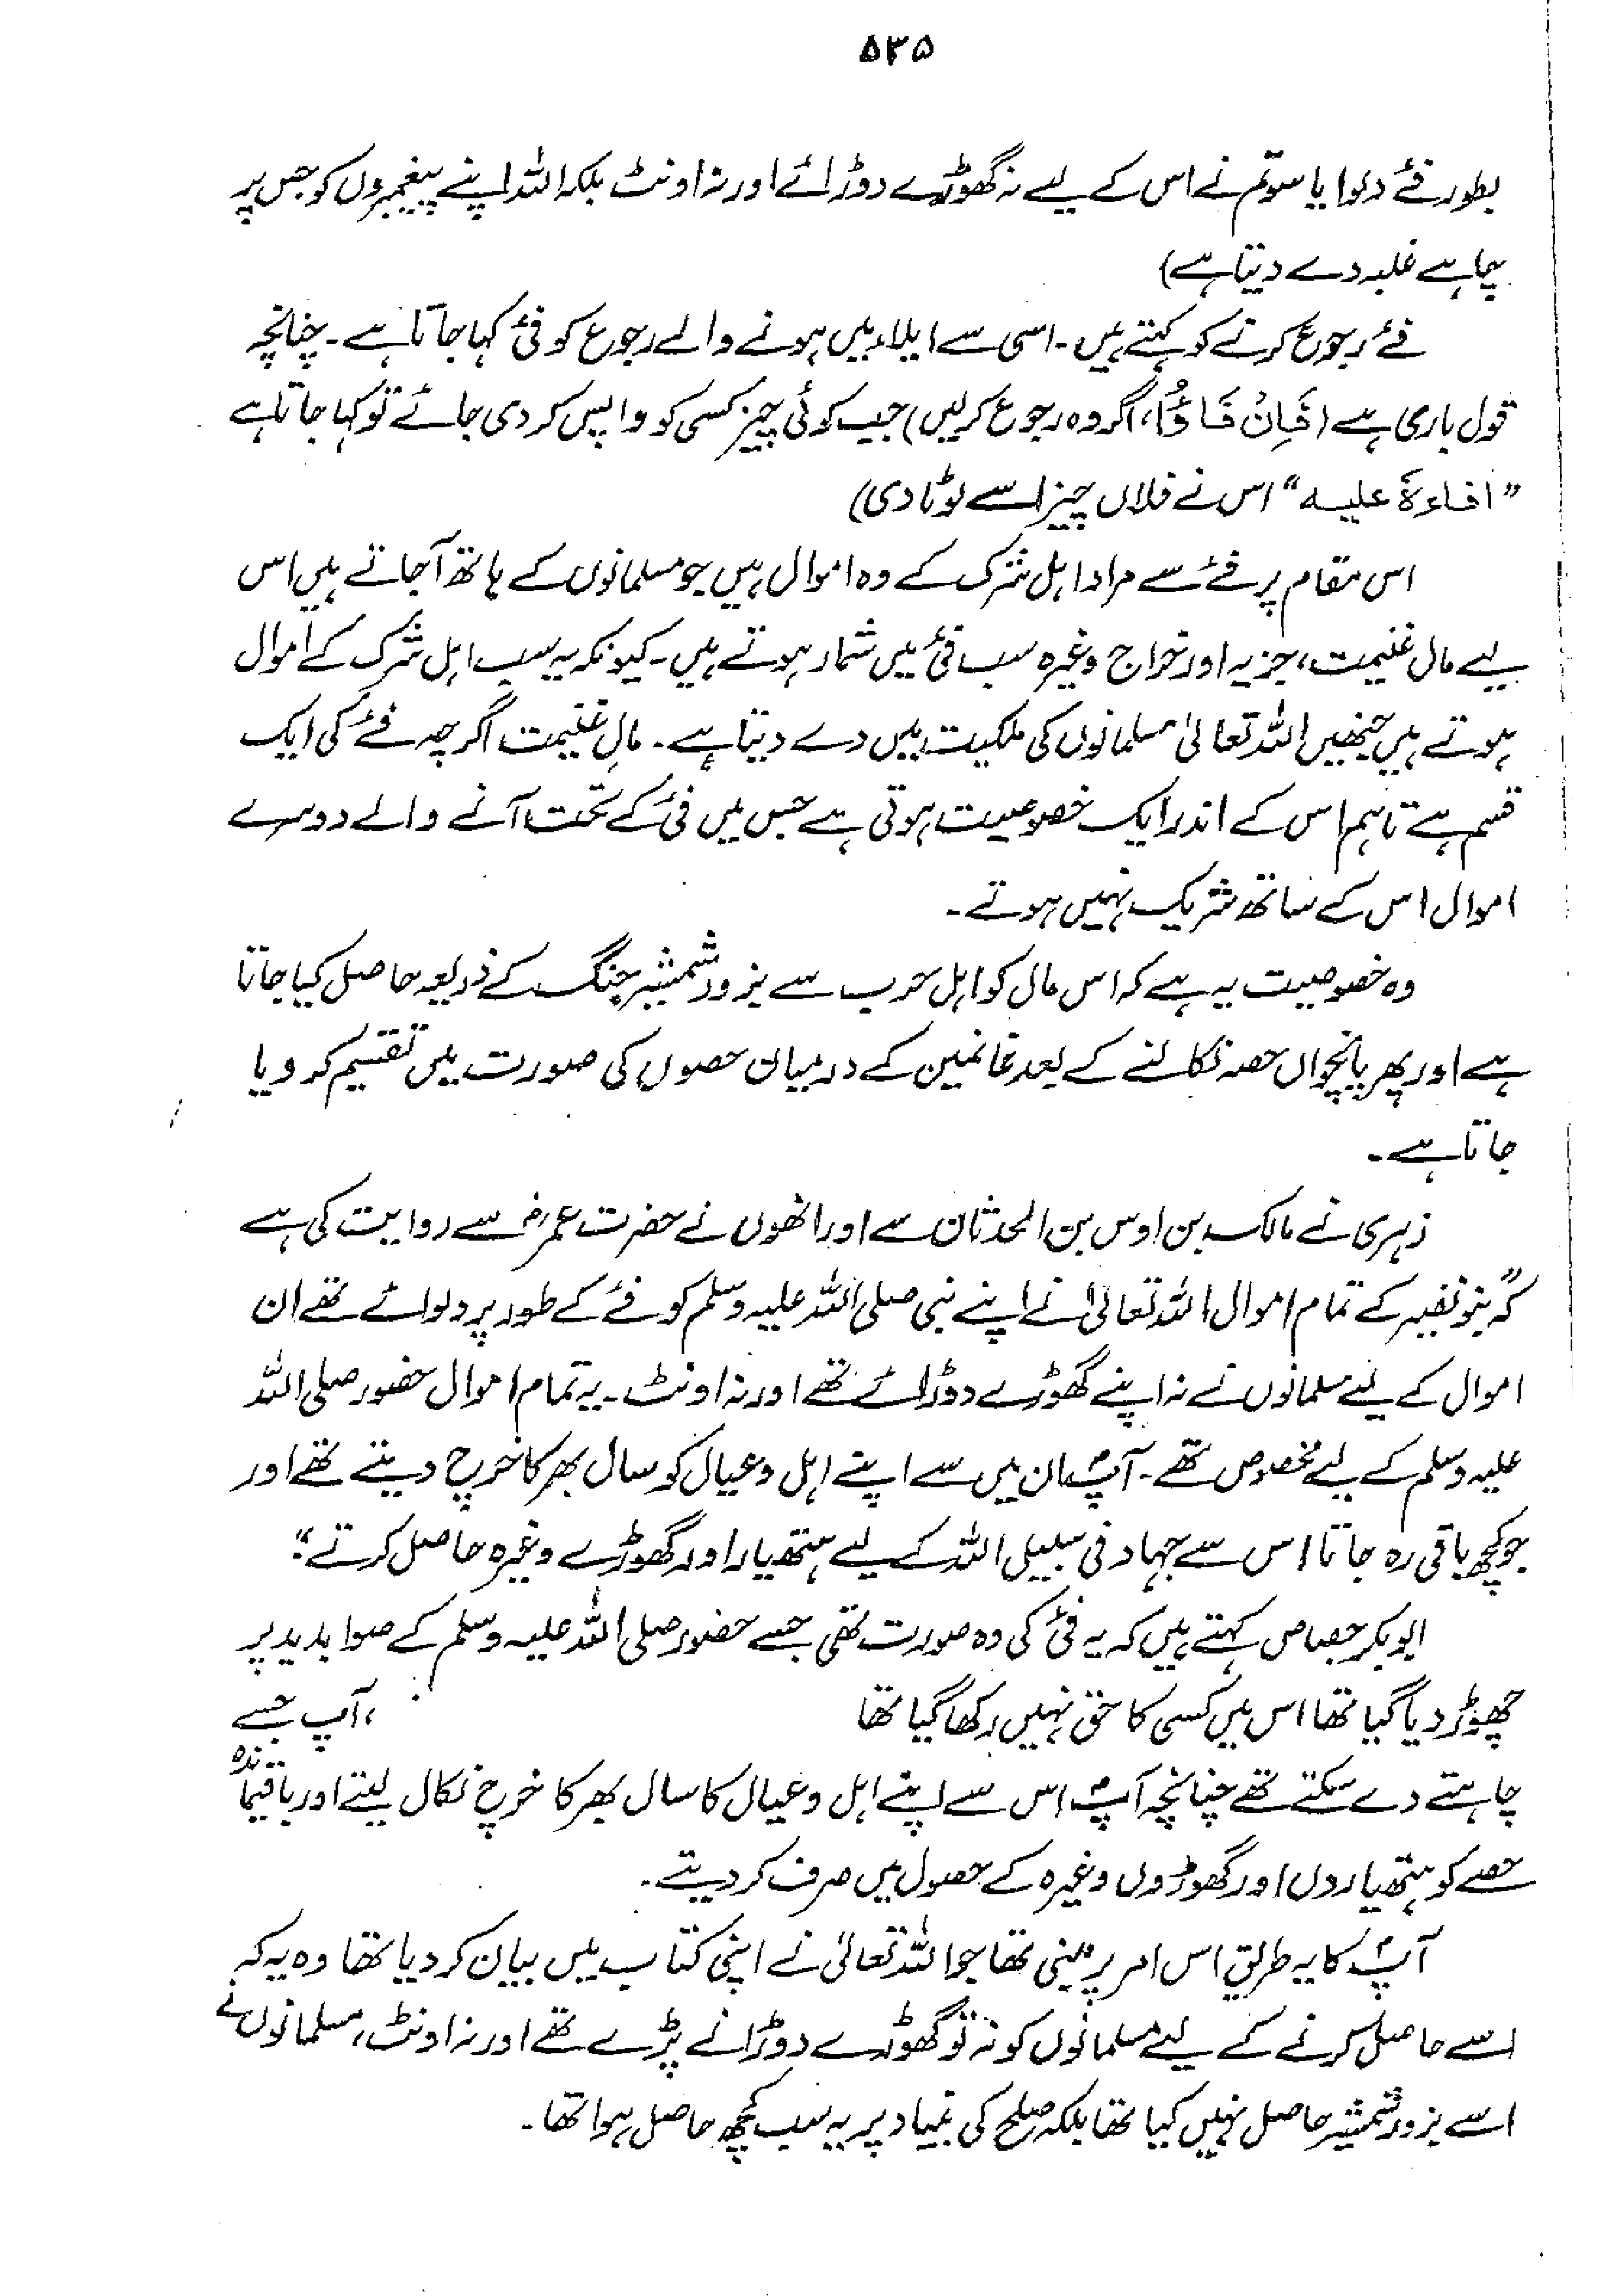 ۵۳۵
بطور فئے دلوایا سو تم نے اس کے لیے نہ گھوڑے دوڑائے اور نہ اونٹ بلکہ اللہ اپنے پیغمبروں کو جس پر
چاہے غلبہ دے دیتا ہے)
فئے رجوع کرنے کو کہتے ہیں۔ اسی سے ایلاء میں ہونے والے رجوع کو فئ کہا جاتا ہے۔ چنانچہ
قول باری ہے (فَاِنْ فَاؤُا، اگر وہ رجوع کرلیں) جب کوئی چیز کسی کو واپس کردی جائے تو کہا جاتا ہے
"افاءہٗ علیہ" اس نے فلاں چیز اسے لوٹا دی)
اس مقام پر فئے سے مراد اہل شرک کے وہ اموال ہیں جو مسلمانوں کے ہاتھ آجاتے ہیں اس
لیے مال غنیمت، جزیہ اور خراج وغیرہ سب فئ میں شمار ہوتے ہیں۔ کیونکہ یہ سب اہل شرک کے اموال
ہوتے ہیں جنھیں اللہ تعالیٰ مسلمانوں کی ملکیت میں دے دیتا ہے۔ مالِ غنیمت اگرچہ فئے کی ایک
قسم ہے تاہم اس کے اندر ایک خصوصیت ہوتی ہے جس میں فئ کے تحت آنے والے دوسرے
اموال اس کے ساتھ شریک نہیں ہوتے۔
وہ خصوصیت یہ ہے کہ اس مال کو اہل حرب سے بزور شمشیر جنگ کے ذریعہ حاصل کیا جاتا
ہے اور پھر پانچواں حصہ نکالنے کے بعد غانمین کے درمیان حصوں کی صورت میں تقسیم کر دیا
جاتا ہے۔
زہری نے مالک بن اوس بن الحدثان سے اور انھوں نے حضرت عمرؓ سے روایت کی ہے
کہ "بنو نضیر کے تمام اموال اللہ تعالیٰ نے اپنے نبی صلی اللہ علیہ وسلم کو فئے کے طور پر دلوائے تھے ان
اموال کے لیے مسلمانوں نے نہ اپنے گھوڑے دوڑائے تھے اور نہ اونٹ۔ یہ تمام اموال حضور صلی اللہ
علیہ وسلم کے لیے مخصوص تھے۔ آپؐ ان میں سے اپنے اہل وعیال کو سال بھر کا خرچ دیتے تھے اور
جو کچھ باقی رہ جاتا اس سے جہاد فی سبیل اللہ کے لیے ہتھیار اور گھوڑے وغیرہ حاصل کرتے"۔
ابوبکر جصاص کہتے ہیں کہ یہ فئ کی وہ صورت تھی جسے حضور صلی اللہ علیہ وسلم کے صوابدید پر
چھوڑ دیا گیا تھا اس میں کسی کا حق نہیں رکھا گیا تھا ، آپ جسے
چاہتے دے سکتے تھے چنانچہ آپؐ اس سے اپنے اہل وعیال کا سال بھر کا خرچ نکال لیتے اور باقیماندہ
حصے کو ہتھیاروں اور گھوڑوں وغیرہ کے حصول میں صرف کر دیتے۔
آپؐ کا یہ طریق اس امر پر مبنی تھا جو اللہ تعالیٰ نے اپنی کتاب میں بیان کر دیا تھا وہ یہ کہ
اسے حاصل کرنے کے لیے مسلمانوں کو نہ تو گھوڑے دوڑانے پڑے تھے اور نہ اونٹ، مسلمانوں نے
اسے بزور شمشیر حاصل نہیں کیا تھا بلکہ صلح کی بنیاد پر یہ سب کچھ حاصل ہوا تھا۔